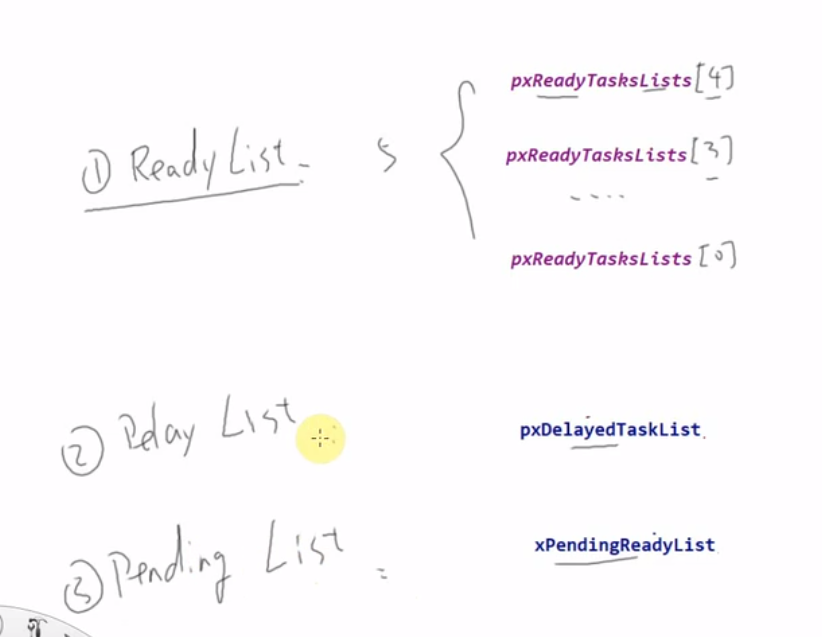 ① Ready List 5 pxReadyTasksLists [4]
pxReadyTasksLists [3]
....
pxReadyTasksLists [0]
② Delay List pxDelayedTaskList
③ Pending List xPendingReadyList